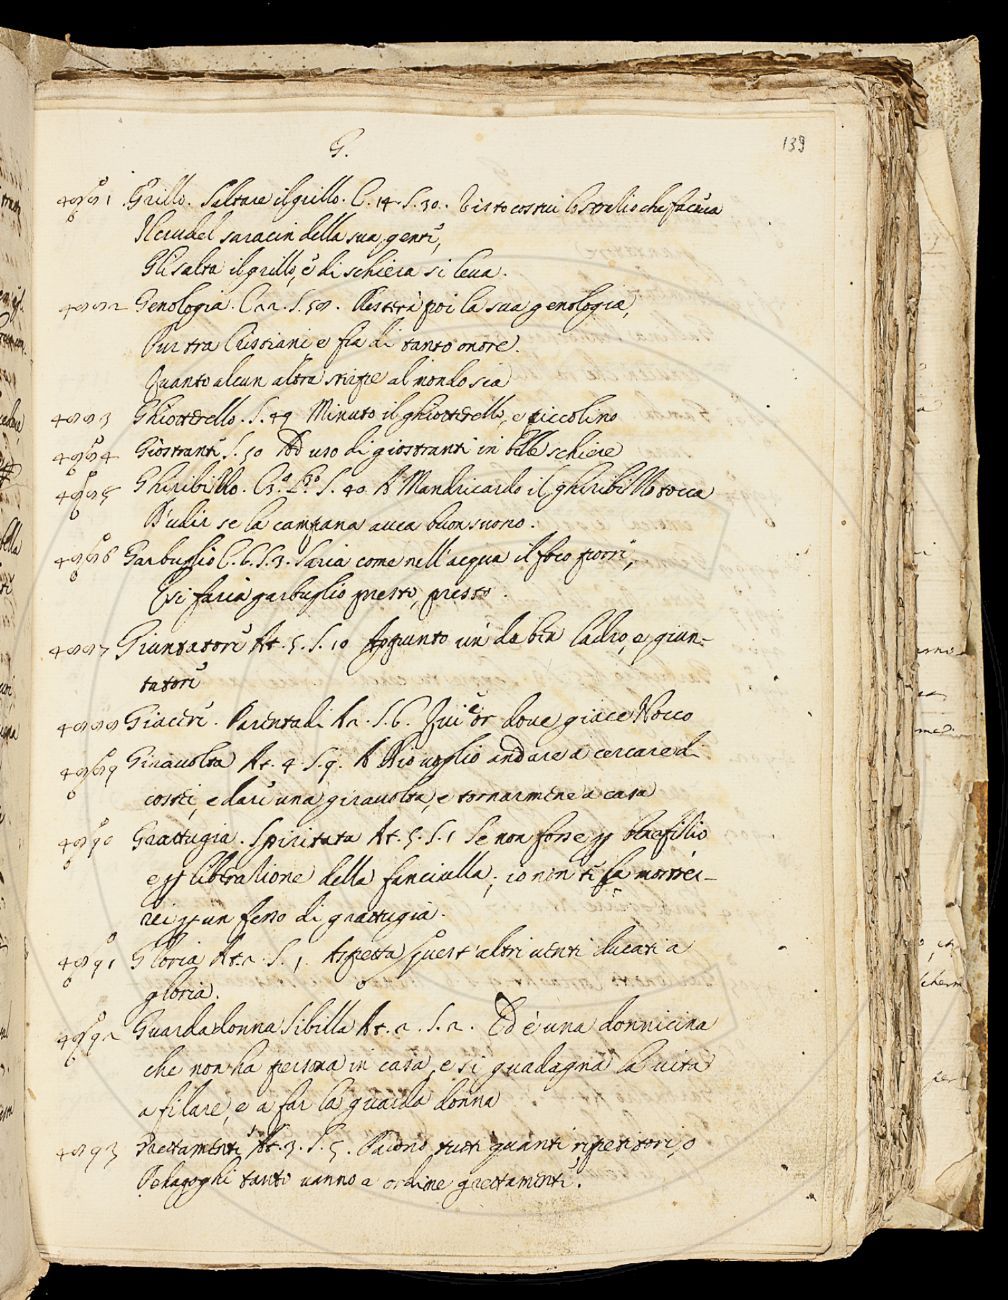 G.
139
4881 Grillo. Saltare il grillo. C. 14. S. 30. Visto costui lo stratio che faceua
Il crudel saracin della sua gente,
Gli salta il grillo, e di schiera si leua.
4882 Genologia. C. 22. S. 58. Resterà poi la sua genologia,
Pur tra Cristiani e fia di tanto onore.
Quanto alcun' altra stirpe al mondo sia
4883 Ghiotterello. S. 49 Minuto il ghiotterello, e piccolino
4884 Giostranti S. 50 Ad uso di giostranti in belle schiere
4885 Ghiribillo. S. 40. A Mandricardo il ghiribillo tocca
D'udir se la campana auea buon suono.
4886 Garbuglio C. 6. S. 3. Saria come nell'acqua il foco porre,
E si faria garbuglio presto, presto.
4887 Giuntatore At. 5. S. 10 Aggiunto un da ben ladro, e giun-
tatore
4888 Giacere. Parentadi At. 2. S. 6. Qui e or doue giace Nocco
4889 Girauolta At. 4. S. 9. A Dio uoglio andare a cercare di
costei, e dare una girauolta, e tornarmene a casa
4890 Grattugia. Spiritata At. 5. S. 1 Se non fosse p benefitio
e p liberatione della fanciulla, io non ti fa
rei p un ferro di grattugia.
4891 Gloria At. 2. S. 1 Aspetta quest'altri uenti ducati a
gloria.
4892 Guardadonna Sibilla At. 2. S. 2. Ed è una donnicina
che non ha persona in casa, e si guadagna la uita
a filare, e a far la guarda donna
4893 Grettamente At. 3. S. 5. tutti quanti ripetitori, o
Pedagoghi tanto uanno a ordine grettamente.